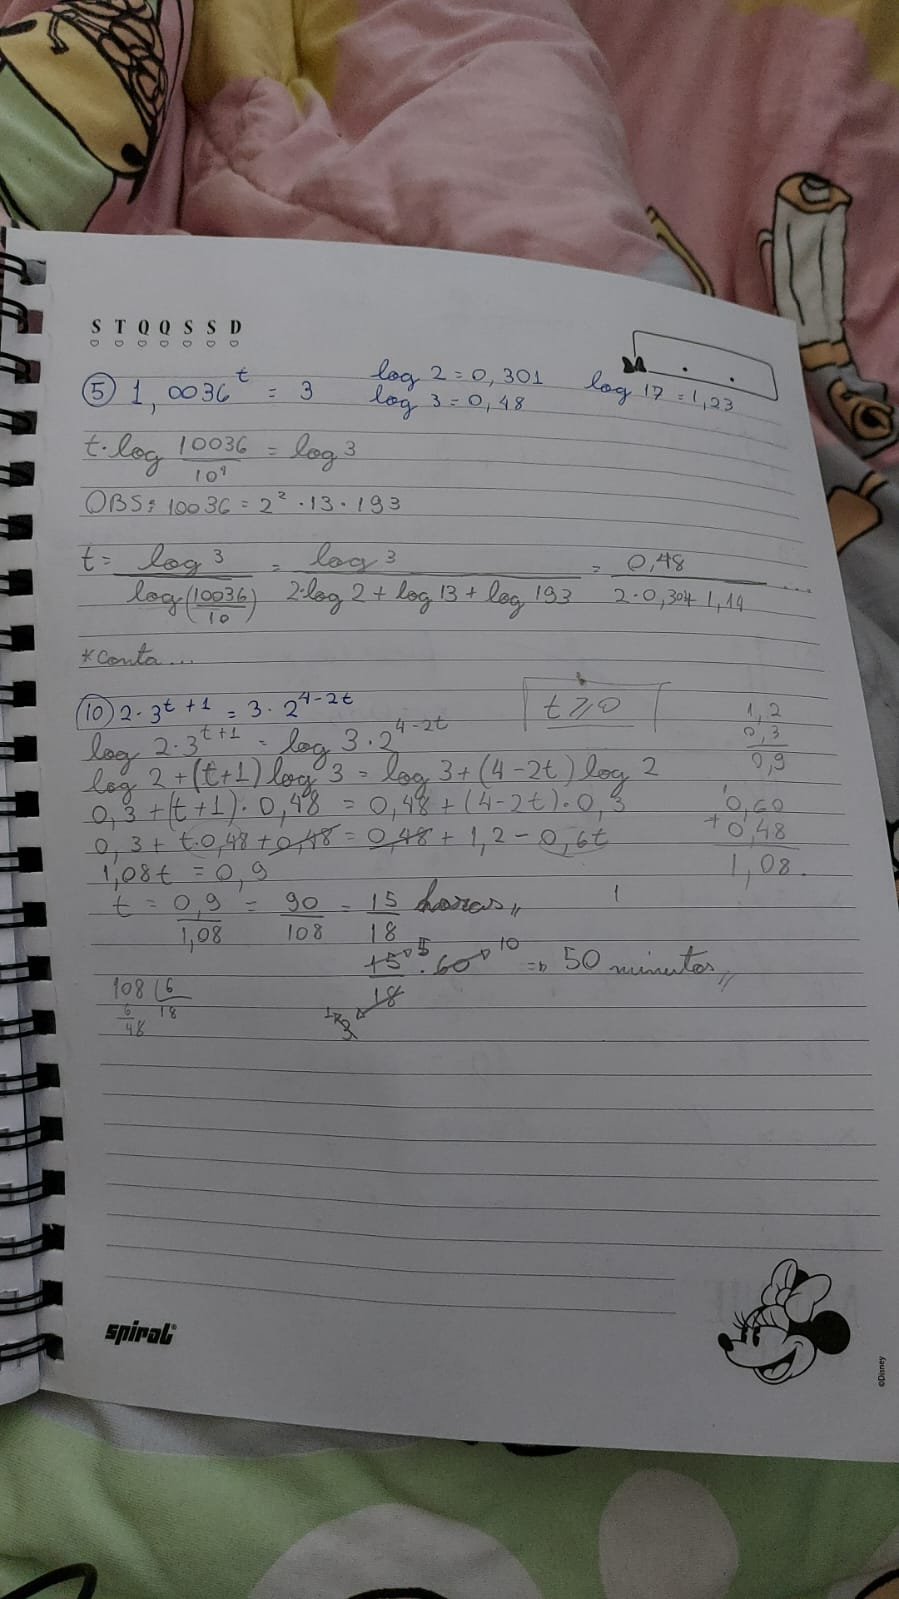 S T Q Q S S D
⑤ 1,0036^t = 3 log 2 = 0,301 log 17 = 1,23
log 3 = 0,48
t·log 10036/10⁴ = log 3
OBS: 10036 = 2² · 13 · 193
t = log 3/log(10036/10) = log 3/2·log 2 + log 13 + log 193 = 0,48/2·0,30+ 1,14 ...
*Conta...
⑩ 2·3^t+1 = 3·2^4-2t t ⩾ 0
log 2·3^t+1 = log 3·2^4-2t
log 2 + (t+1) log 3 = log 3 + (4-2t) log 2
0,3 + (t+1)·0,48 = 0,48 + (4-2t)·0,3
0,3 + t·0,48 + 0,48 = 0,48 + 1,2 - 0,6t
1,08t = 0,9
t = 0,9/1,08 = 90/108 = 15/18 horas,,
15/18 · 60 ⇒ 50 minutos,,
5 10
3
108 6
6 18
48
1,2
0,3
0,9
0,60
+ 0,48
1,08
spiral
©Disney